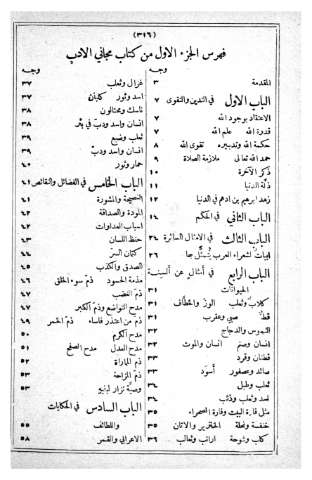 (٣١٦)
فهرس الجزء الاول من كتاب مجاني الادب
وجه
المقدمة ٣
الباب الاول في التدين والتقوى ٧
الاعتقاد بوجود الله ٧
قدرة الله علم الله ٧
حكمة الله وتدبيره تقوى الله ٨
حمد الله تعالى ملازمة الصلاة ٩
ذكر الآخرة ١٠
ذلة الدنيا ١١
زهد ابرهيم بن ادهم في الدنيا ١٢
الباب الثاني في الحكم ١٤
الباب الثالث في الامثال السائرة ٢٤
ابيات لشعراء العرب يتمثل بها ٢٦
الباب الرابع في أمثال عن ألسنة
الحيوانات ٣١
كلاب وثعلب الوز والخطاف ٣١
قط صبي وعقرب ٣١
النموس والدجاج ٣٢
انسان وصنم انسان والموت ٣٢
قطتان وقرد ٣٣
صائد وعصفور أسود ٣٣
ثعلب وطبل ٣٤
اسد وثعلب وذئب ٣٤
مثل فارة البيت وفارة الصحراء ٣٥
خنفسة ونحلة الخنزير والاتان ٣٥
كلب وشوحة ارانب وثعالب ٣٦
وجه
غزال وثعلب ٣٧
اسد وثور كلبان ٣٧
ناسك ومحتالون ٣٨
انسان واسد ودب في بئر ٣٨
ثعلب وضبع ٣٩
انسان واسد ودب ٣٩
حمار وثور ٤٠
الباب الخامس في الفضائل والنقائص ٤١
النصيحة والمشورة ٤١
المودة والصداقة ٤٢
اسباب العداوات ٤٢
حفظ اللسان ٤٣
كتمان السر ٤٤
الصدق والكذب ٤٥
مذمة الحسود ذم سوء الخلق ٤٦
ذم الغضب ٤٧
مدح التواضع وذم الكبر ٤٧
ذم من اعتذر فاساء ذم الخمر ٤٩
مدح الكريم ٥٠
مدح العدل مدح الصفح ٥١
ذم المماراة ٥٢
ذم المزاحة ٥٣
وصية نزار لبنيه ٥٣
الباب السادس في الحكايات
واللطائف ٥٥
الاعرابي والقمر ٥٨